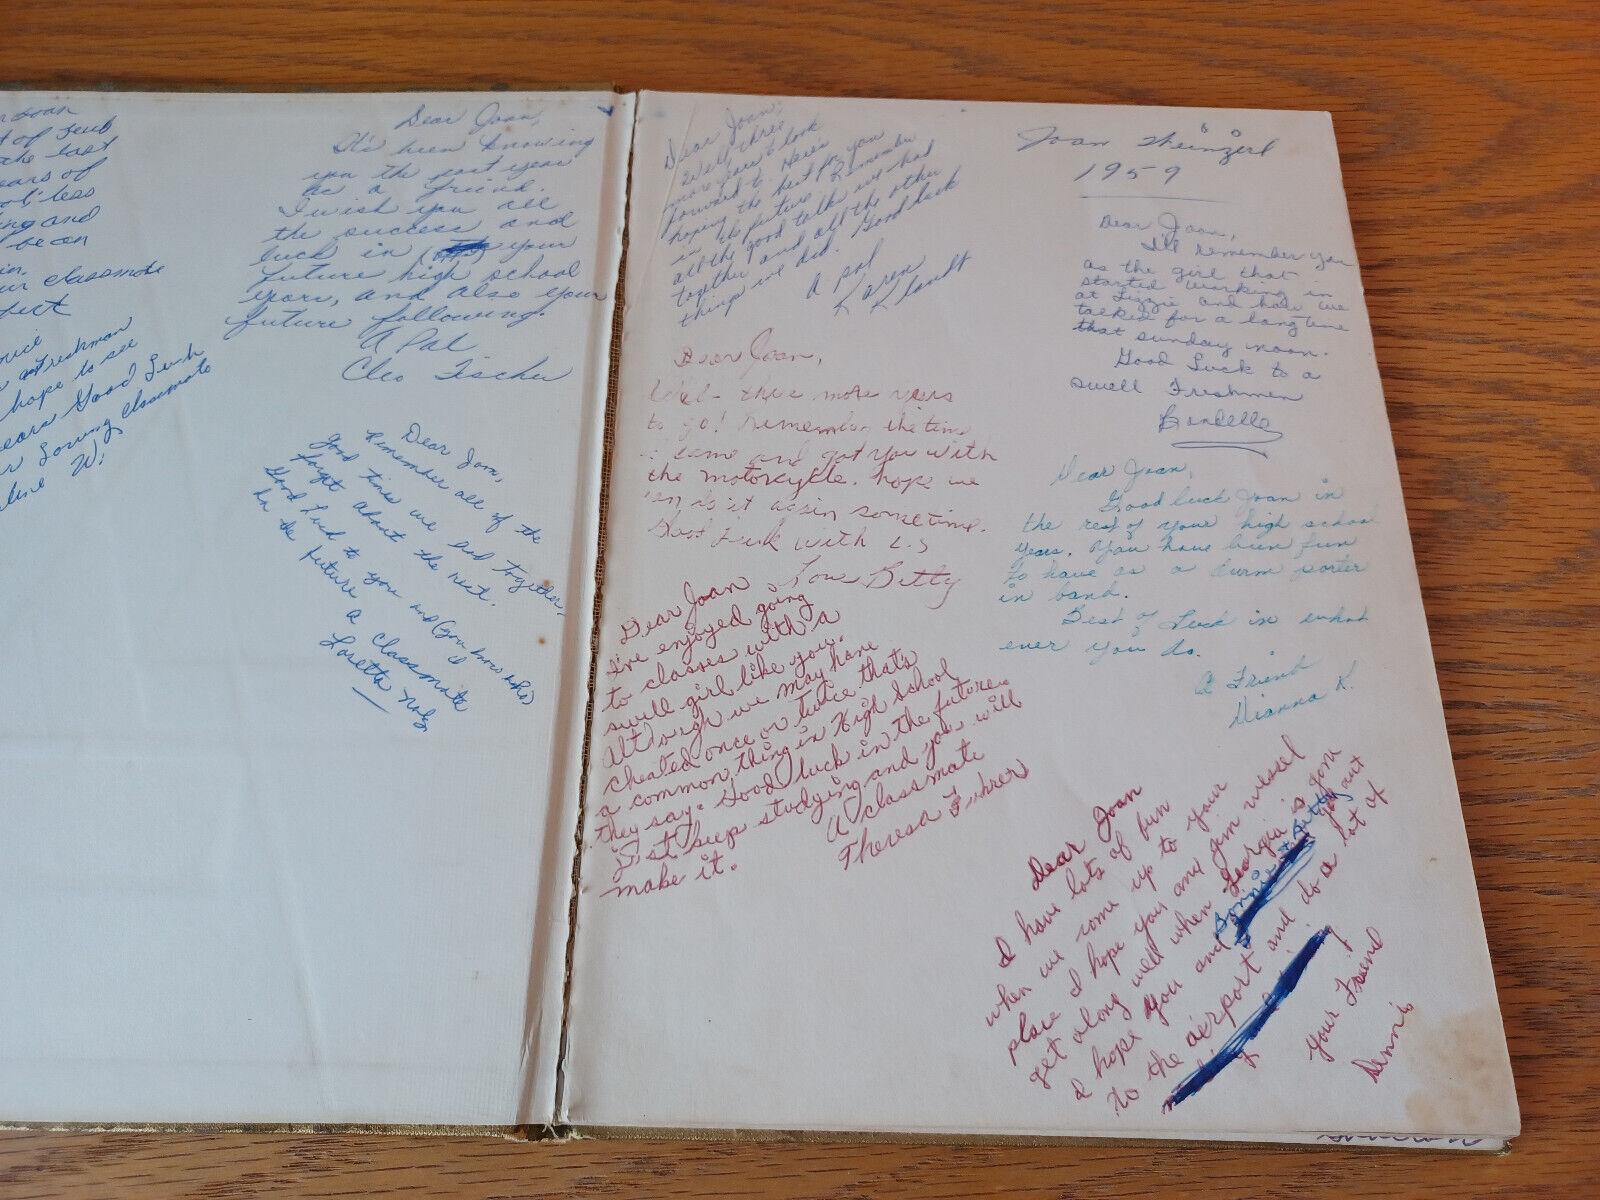 Joan
of
the last
years of
less
and
be on
in.
classmate
Freshman
hope to see
Good Luck
Loving Classmate
W.
Dear Joan,
It's been knowing
you the past year
as a friend.
I wish you all
the success and
luck in your
future high school
years, and also your
future following.
A Pal
Cleo Fischer
Dear Joan,
Remember all of the
good times we had together,
forget about the rest.
Good Luck to you and (you know who)
in the future
a Classmate
Loretta
Dear Joan,
Well three
more years to look
forward to. Heres
hoping the best for you
in the future. Remember
all the good talks we had
together and all the other
things we did. Good luck
A pal
Karen Klandt
Dear Joan,
Well - three more years
to go! Remember the time
I came and got you with
the motorcykle. hope we
can do it again sometime.
Good Luck with L.S
Love Betty
Dear Joan
I've enjoyed going
to classes with a
swell girl like you.
Although we may have
cheated once or twice that's
a common thing in High School
they say. Good luck in the future.
Just keep studying and you will
make it.
A Classmate
Theresa Fuhrer
Joan Weinzierl
1959
Dear Joan,
I'll remember you
as the girl that
started working in
at Lizzie and how we
talked for a long time
that sunday noon.
Good Luck to a
swell Freshmen
Bardelle
Dear Joan,
Good luck Joan in
the rest of your high school
years. You have been fun
to have as a durm porter
in band.
Best of Luck in what
ever you do.
A Friend
Dianna K.
Dear Joan
I have lots of fun
when we come up to your
place I hope you and Jim wessel
get along well when Georgia is gone
I hope you and Bonnie & Betty get out
to the airport and do a lot of
Your Friend
Dennis